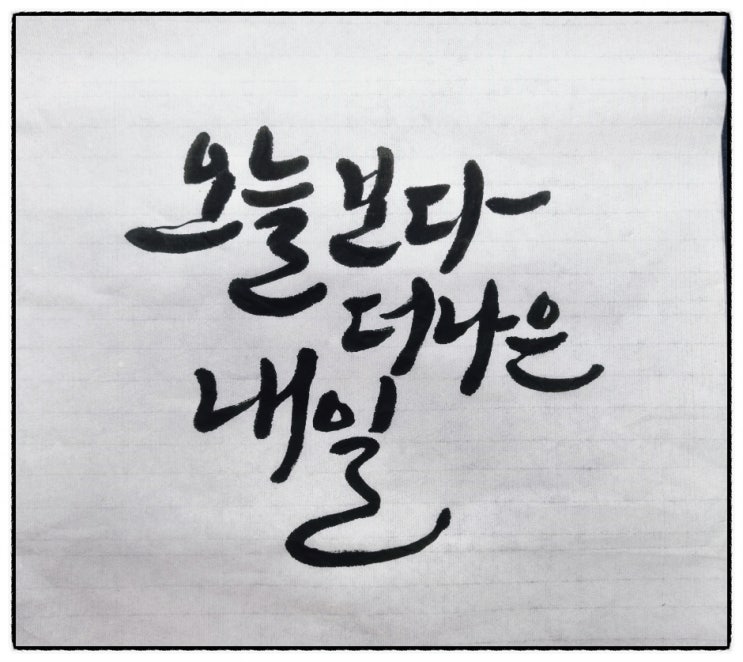 오늘보다
더나은
내일